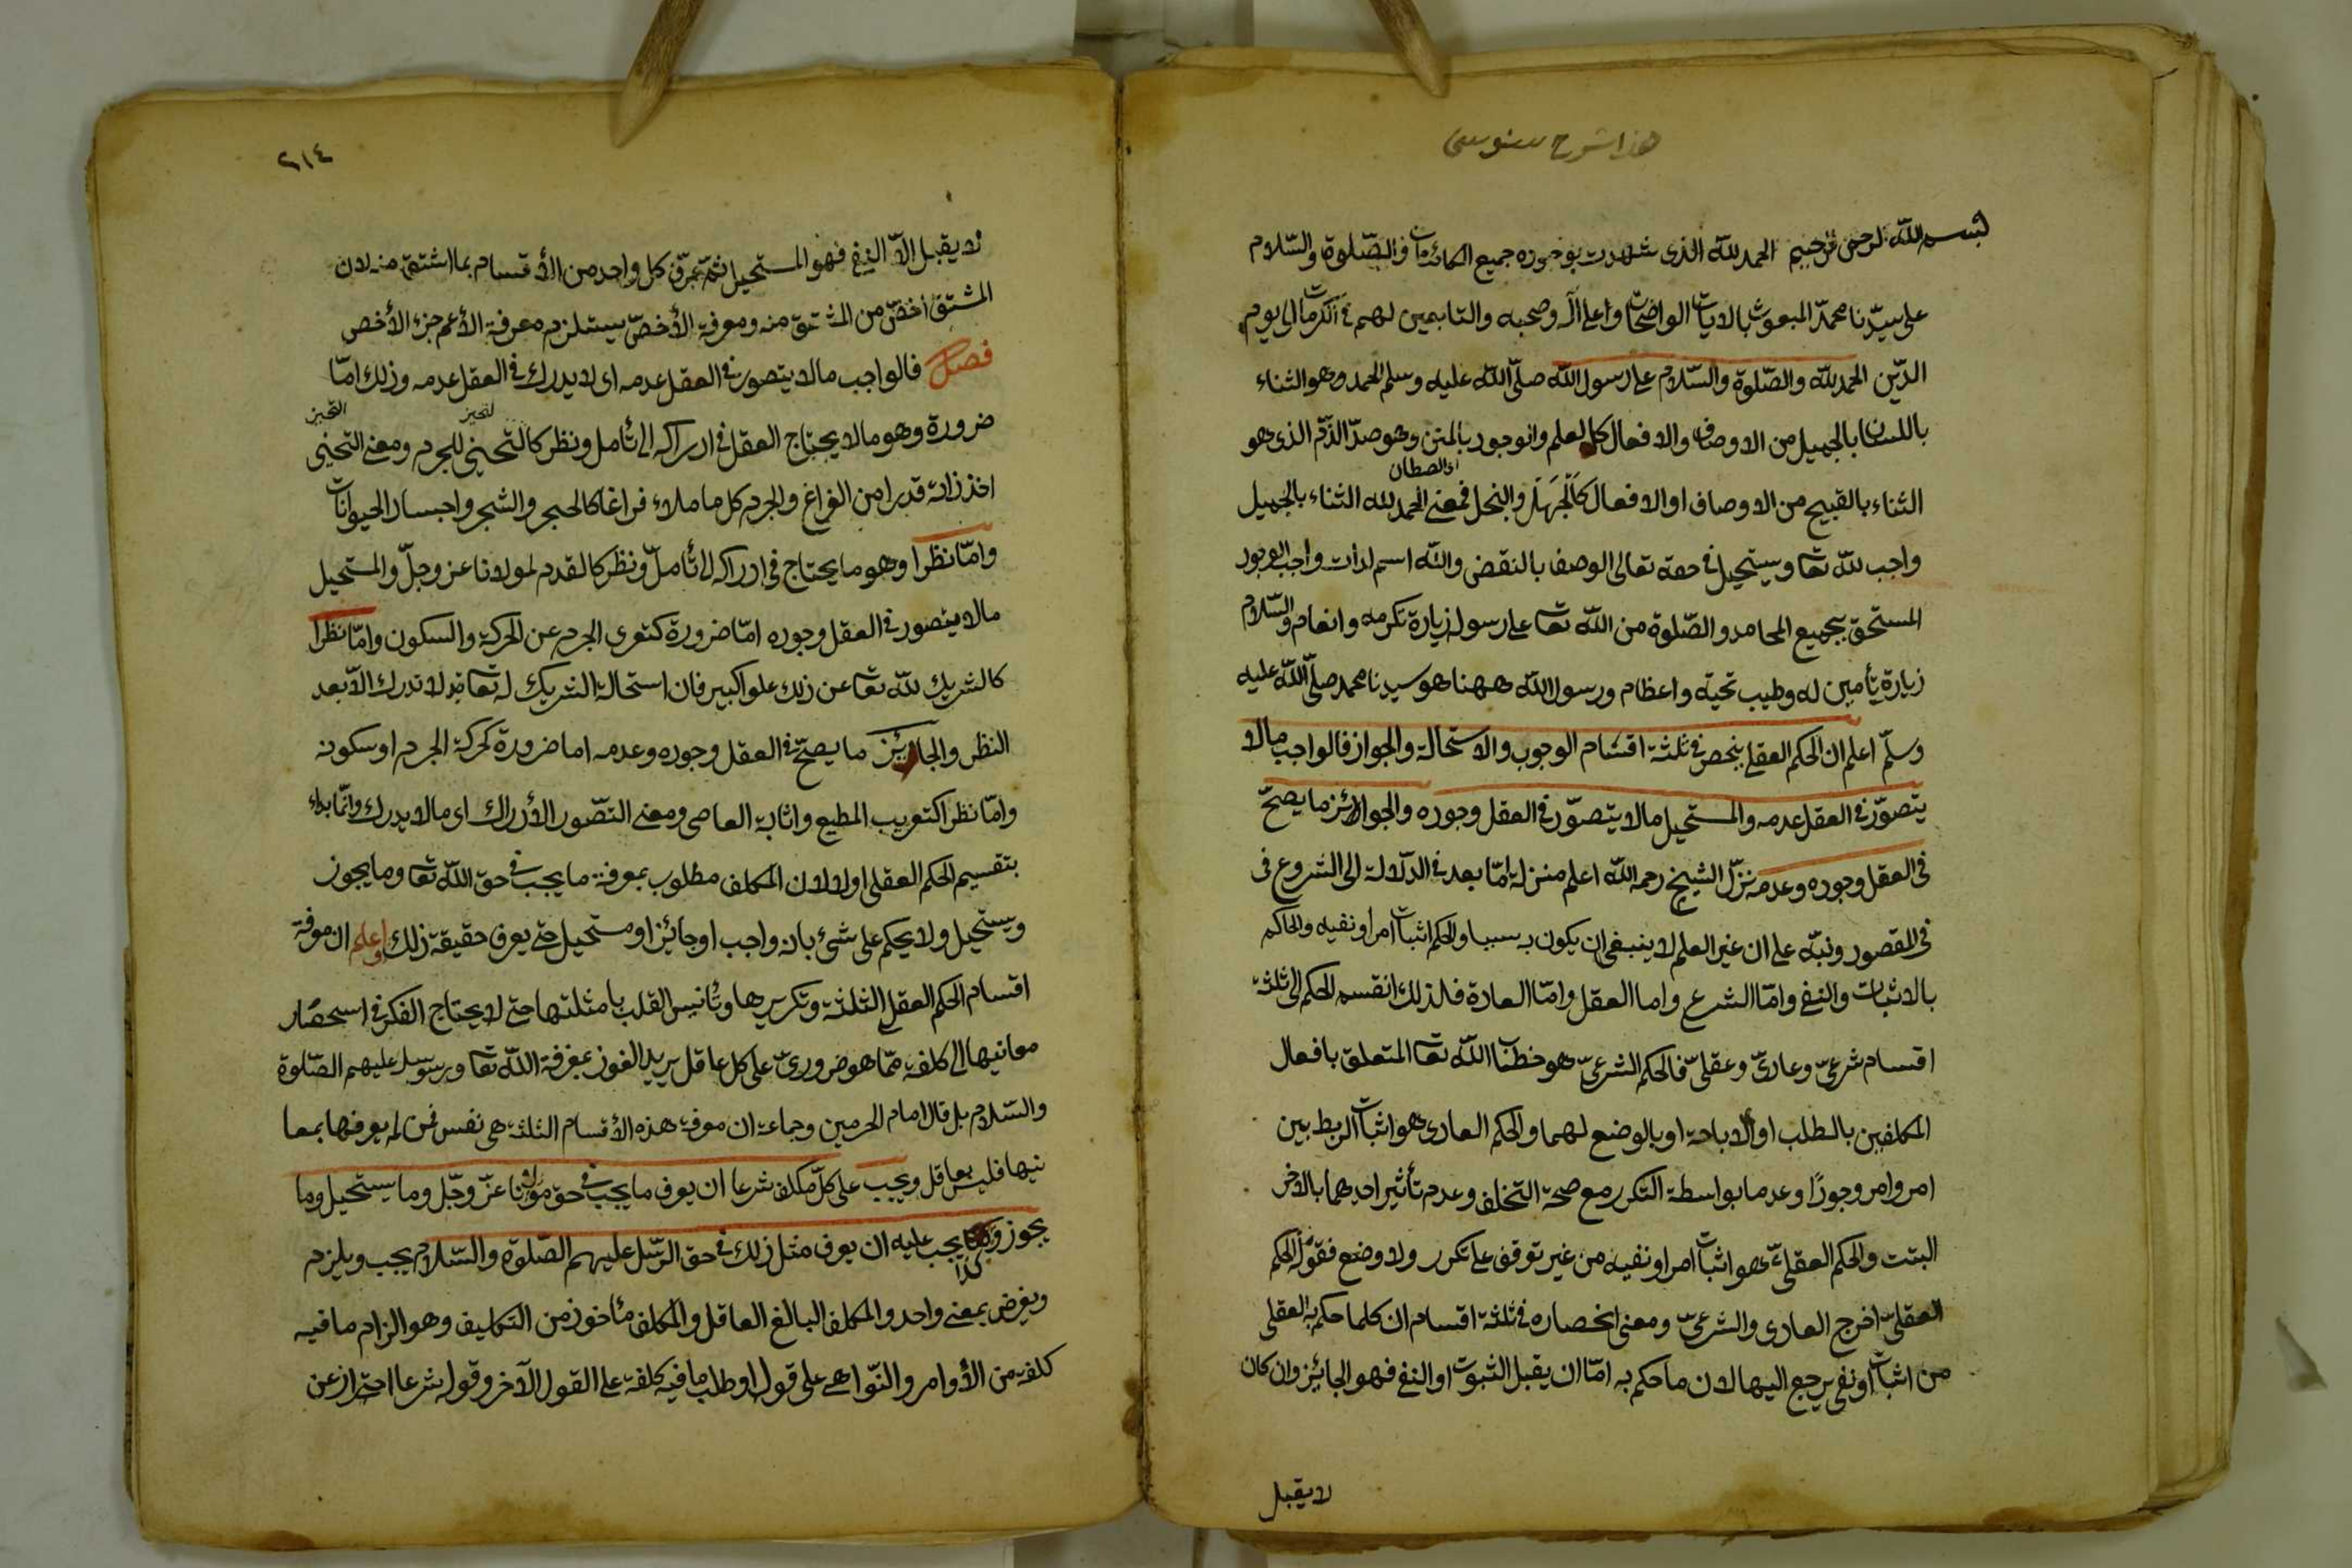 هذا شرح سنوسى
بسم الله الرحمن الرحيم الحمد لله الذى شهدت بوجوده جميع الكائنات والصّلوة والسّلام
على سيّدنا محمد المبعوث بالايات الواضحات وعلى اله وصحبه والتابعين لهم الى يوم
الدّين الحمد لله والصّلوة والسّلام على رسول الله صلّى الله عليه وسلم الحمد وهو الثناء
باللسان بالجميل من الاوصاف والافعال كالعلم والوجود بالمنن وهو ضدّ الذّم الذى هو
الثناء بالقبيح من الاوصاف او الافعال كالجهل والبخل فمعنى الحمد لله الثناء بالجميل
واجب لله تعا ويستحيل فى حقه تعالى الوصف بالنقض والله اسم لذات واجب الوجود
المستحق بجميع المحامد والصّلوة من الله تعا على رسوله زيارة تكرمه وانعام والسّلام
زيارة تأمين له وطيب تحية واعظام ورسول الله ههنا هو سيدنا محمد صلّى الله عليه
وسلّم اعلم ان الحكم العقلى ينحصر فى ثلثة اقسام الوجوب والاستحالة والجواز فالواجب مالا
يتصوّر فى العقل عدمه والمستحيل مالا يتصوّر فى العقل وجوده والجائز ما يصحّ
فى العقل وجوده وعدمه نزّل الشيخ رحمه الله اعلم منزلة امّا بعد فى الدّلالة الى الشروع فى
فى المقصود ونبّه على ان غير العلم لا ينبغى ان يكون به سببا والحكم اثبات امر او نفيه والحاكم
بالاثبات والنفى وامّا الشرع واما العقل وامّا العادة فلذلك انقسم الحكم الى ثلثة
اقسام شرعىّ وعادىّ وعقلىّ فالحكم الشرعىّ هو خطاب الله تعا المتعلق بافعال
المكلفين بالطلب او الاباحة او بالوضع لهما والحكم العادى هو اثبات الربط بين
امر وامر وجودًا وعدما بواسطة التكرر مع صحة التخلف وعدم تأثير احدهما بالاخر
البتت والحكم العقلىّ هو اثبات امر او نفيه من غير توقف على تكرر ولا وضع فقوله الحكم
العقلىّ اخرج العادى والشرعىّ ومعنى انحصاره فى ثلثة اقسام ان كلما حكم به العقلى
من اثبات او نفى يرجع اليها لان ما حكم به امّا ان يقبل الثبوت او النفى فهو الجائز وان كان
لا يقبل
٢١٤
لا يقبل الاّ النفى فهو المستحيل ثمّ عرّف كل واحد من الأقسام بما اشتق منه لان
المشتق أخصّ من المشتق منه ومعرفة الأخصّ يستلزم معرفة الأعم جزء الأخص
فصل فالواجب مالا يتصور فى العقل عدمه اى لا يدرك فى العقل عدمه وذلك امّا
ضرورة وهو مالا يحتاج العقل فى ادراكه الى تأمل ونظر كالتحيز للجرم ومعنى التحيز
اخذ ذاته قدرا من الفراغ والجرم كل ما ملاء فراغا كالحجر والشجر واجساد الحيوانات
وامّا نظرا وهو ما يحتاج فى ادراكه الى تأملّ ونظر كالقدم لمولانا عز وجلّ والمستحيل
مالا يتصور فى العقل وجوده امّا ضرورة كتعرى الجرم عن الحركة والسكون وامّا نظرا
كالشريك لله تعا عن ذلك علوا كبير فان استحالة الشريك له تعا لا تدرك الاّ بعد
النظر والجائز ما يصحّ فى العقل وجوده وعدمه اما ضرورة كحركة الجرم او سكونه
وامّا نظرا كتعذيب المطيع واثابة العاصى ومعنى التصّور الأدراك اى مالا يدرك وانّما بداء
بتقسيم الحكم العقلى اولا لان المكلف مطلوب بمعرفة ما يجب فى حق الله تعا وما يجوز
ويستحيل ولا يحكم على شئ بانه واجب او جائز او مستحيل حتى يعرف حقيقة ذلك واعلم ان معرفة
اقسام الحكم العقلى الثلثة وتكريرها وتأنيس القلب بامثلتها حتى لا يحتاج الفكر فى استحضار
معانيها الى كلفة ممّا هو ضرورىّ على كل عاقل يريد الفوز بمعرفة الله تعا ورسوله عليهم الصّلوة
والسّلام بل قال امام الحرمين وجماعة ان معرفة هذه الأقسام الثلثة هى نفس فمن لم يعرفها بمعا
نيها فليس بعاقل ويجب على كلّ مكلف شرعا ان يعرف ما يجب فى حق مولانا عزّ وجّل وما يستحيل وما
يجوز وكذا يجب عليه ان يعرف مثل ذلك فى حق الرّسل عليهم الصّلوة والسّلام يجب ويلزم
ويفرض بمعنى واحد والمكلف البالغ العاقل والمكلف مأخوذ من التكليف وهو الزام ما فيه
كلفة من الأوامر والنّواهى على قول او طلب ما فيه كلفة على القول الآخر وقوله شرعا احتراز عن